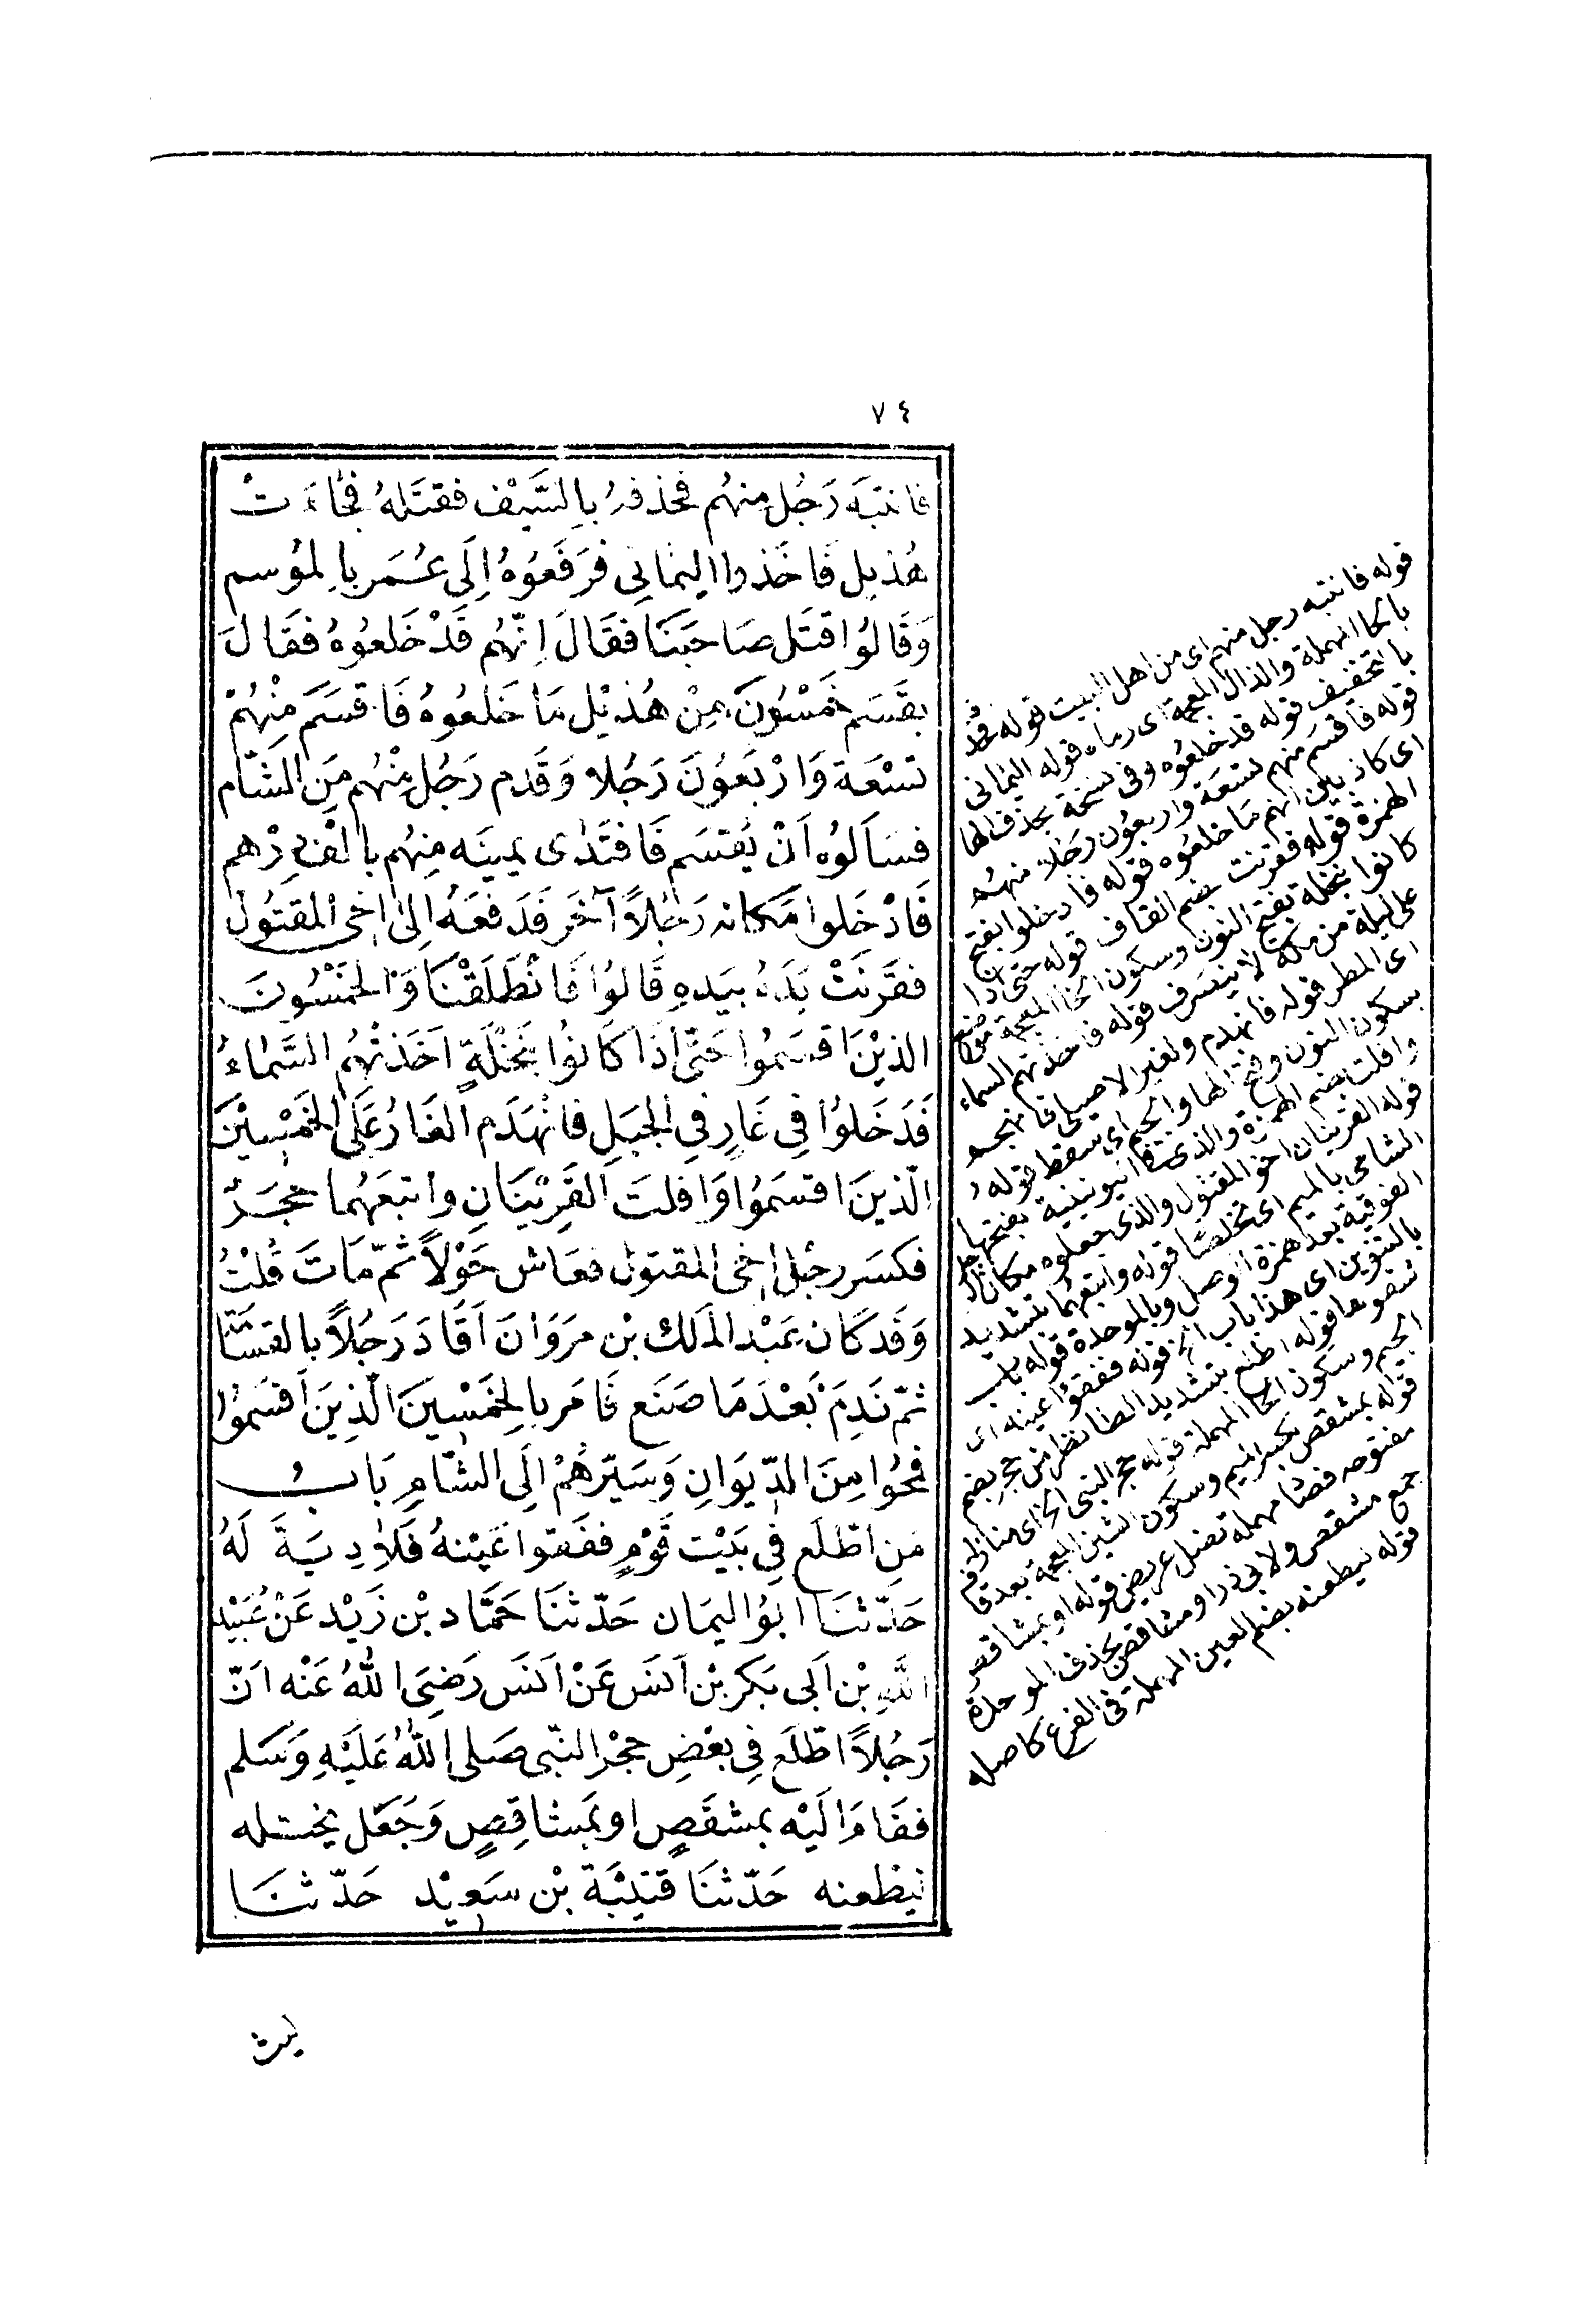 ٧٤
فانتبَه رَجُل مِنهُم فحذفهُ بِالسَّيْف فقتَلهُ فجَاءَتْ
هُذيل فَاخَذوا اليمَانِي فرَفَعُوهُ اِلَى عُمَر بِالمُوسم
وَقَالُوا قتَل صَاحبَنَا فقَالَ اِنّهُم قَدْ خَلعُوهُ فقَالَ
يقسَم خمْسُونَ مِنْ هُذيْل مَا خَلعُوهُ فَاقسَمَ مِنْهُمْ
تسْعَة وَارْبَعُونَ رَجُلا وَقَدم رَجُل مِنْهُم مِنَ الشَّام
فسَالُوه اَنْ يُقسَم فَافتَدَى يمينَه مِنهُم بِالف دِرْهم
فَادْخَلوا مَكانه رَجُلاً آخَر فَدَفعَهُ اِلىٰ اخى المقتُول
فقرنَتْ يَدهُ بيَدهِ قَالُوا فَانْطَلَقْنَا وَالخَمْسُونَ
الذيْنَ اقسَمُوا حَتّى اِذَا كَانوُا بنَخْلَةٍ اَخَذتْهُم السَّمَاءُ
فَدَخَلُوا فِي غَارٍ فِي الجَبَلِ فَانْهَدَم الغَارُ عَلَى الخَمْسِيْنَ
الّذينَ اقسَمُوا وَافلتَ القَرِيْنَانِ وَاتبَعَهُمَا حَجَرٌ
فكسَر رجْل اخى المقتول فعَاش حَوْلاً ثمّ مَاتَ قُلْتُ
وَقَد كَان عَبْد المَلك بْن مرَوَانَ اَقَادَ رَجُلاً بالقسَامَة
ثمّ نَدِمَ بَعْدَ مَا صَنَع فَامَر بالخَمْسِينَ الّذِينَ اَقسَمُوا
فمحُوا مِنَ الدّيوَانِ وَسَيّرهُمْ اِلَى الشّامِ بَابُ
مَن اطّلَع فِي بَيْت قَوْمٍ ففَقئوا عَيْنهُ فَلَا دِيَةَ لَهُ
حَدّثنَا ابوُ اليمَان حَدّثنَا حَمّاد بْن زَيْد عَنْ عُبَيْد
اللّهِ بْن اَبى بَكر بْن اَنَس عَنْ اَنَس رَضِىَ اللّهُ عَنْه اَنّ
رَجُلاً اطّلَع فِي بعْضِ حجْر النّبى صَلى اللّهُ عَلَيْهِ وَسَلم
فقَامَ الَيْه بمشقَصٍ او بمَشاقِصٍ وَجَعَل يختله
ليطْعنه حَدّثنَا قتَيْبَة بْن سَعِيْد حَدّثنَا
ليث
قوله فانتبه رجل منهم اى من اهل البيت قوله فحذفه
بالحا المهملة والذال المعجمة اى رماه قوله اليمانى
بالتخفيف قوله قد خلعوه وفى نسخة بحذف الها
قوله فاقسم منهم تسعة واربعون رجلا منهم
اى كاذبين انهم ما خلعوه قوله فادخلوا بفتح
الهمزة قوله فقرنت بضم القاف قوله حتى اذا
كانوا بنخلة بفتح النون وسكون الخا المعجمة موضع
على ليلة من مكة لا ينصرف قوله فاخذتهم السماء
اى المطر قوله فانهدم ولغير الاصيلى فانهجم
بسكون النون وفتح الها والجيم اى سقط قوله و
وافلت بضم الهمزة والذى فى اليونينية بفتحها
قوله القرينان اخو المقتول والذى جعلوه مكان الرجل
الشامى بالميم اى تخلصا قوله واتبعهما بتشديد
الفوقية بعد همزة الوصل وبالموحدة قوله باب
بالتنوين اى هذا باب الخ قوله ففقئوا عينه اى
شقوها قوله اطلع بتشديد الطا نظر من حجر بضم
الجيم وسكون الحا المهملة قوله حجر النبى الخ اى منازلهم
قوله بمشقص بكسر الميم وسكون الشين المعجمة بعد قاف
مفتوحه فصاد مهملة نصل عريض قوله او بمشاقص
جمع مشقص ولابى ذر او مشاقص بحذف الموحدة
قوله ليطعنه بضم العين المهملة فى الفرع كاصله